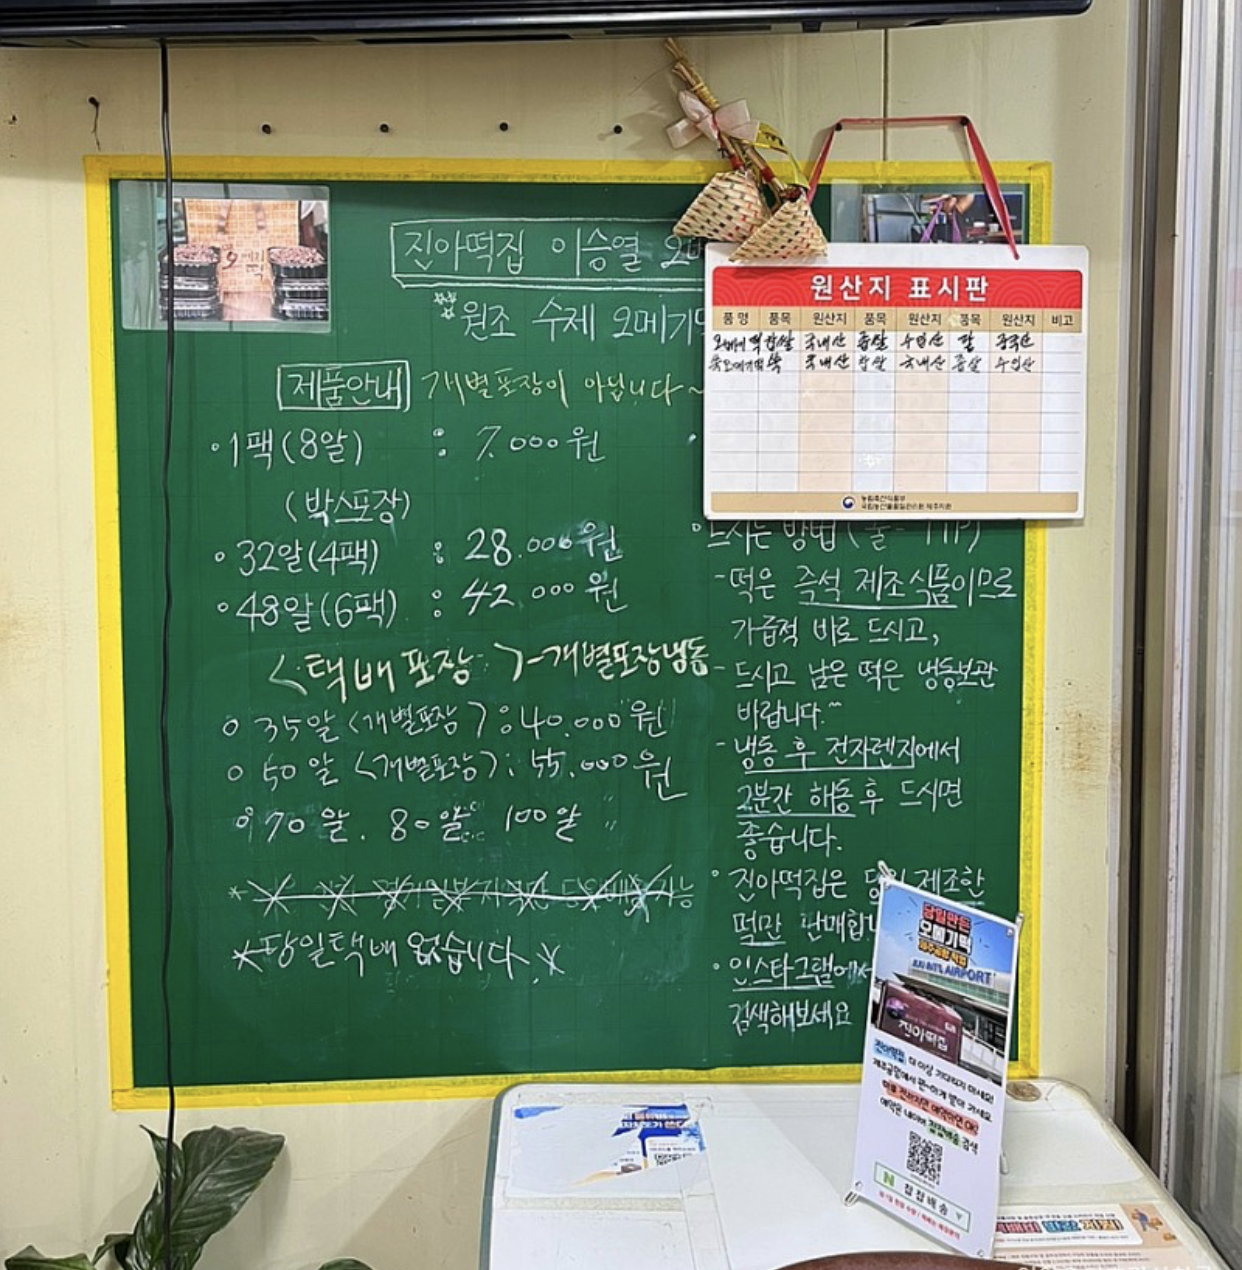 진아떡집 이승열
원조 수제 오메기
제품안내 개별포장이 아닙니다~
·1팩(8알) : 7.000원
(박스포장)
◦32알(4팩) : 28.000원
◦48알(6팩) : 42 000원
<택배포장>-개별포장냉동
○ 35알<개별포장>:40.000원
○ 50알<개별포장>: 55.000원
70알. 80알 100알 "
*당일택배 없습니다*
드시는 방법
-떡은 즉석 제조식품이므로
가급적 바로 드시고,
-드시고 남은 떡은 냉동보관
바랍니다.~
-냉동 후 전자렌지에서
2분간 해동 후 드시면
좋습니다.
◦진아떡집은 당일 제조한
떡만 판매합니
·인스타그램에서
검색해보세요
원산지 표시판
품명 품목 원산지 품목 원산지 품목 원산지 비고
오메기떡 찹쌀 국내산 좁쌀 수입산 팥 중국산
쑥오메기떡 쑥 국내산 찹쌀 국내산 좁쌀 수입산
농림축산식품부
국립농산물품질관리원 제주지원
오메기떡
당일만든
오메기떡
제주공항 픽업
JEJU INT'L AIRPORT
진아떡집
진아떡집 더 이상 기다리지 마세요!
제주공항에서 편~하게 받아 가세요
예약은 네이버 집집배송 검색
N 집집배송